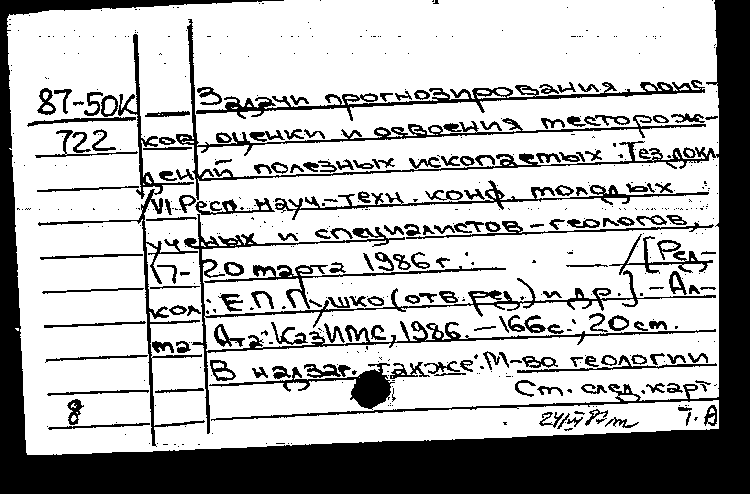 87-50К Задачи прогнозирования, поис-
722 ков, оценки и освоения месторож-
дений полезных ископаемых: Тез. докл.
/VI Респ. науч.-техн. конф. молодых
ученых и специалистов-геологов,
17-20 марта 1986 г.: / [Ред-
кол.: Е.П. Пушко (отв. ред.) и др.]. - Ал-
ма-Ата: КазИМС, 1986. - 166 с.; 20 см.
В надзаг. также: М-во геологии
См. след. карт.
8
Т. А